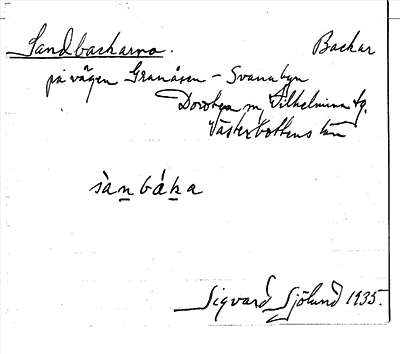 Sandbackarna. Backar
på vägen Granåsen - Svanabyn
Dorotea m Vilhelmina tg.
Västerbottens län
sànbáka
Sigvard Sjölund 1935.